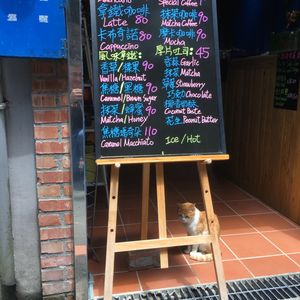 拿鐵咖啡
Latte 80
卡布奇諾 80
Cappuccino
風味拿鐵:
香草/榛果 90
Vanilla/Hazelnut
焦糖/黑糖 90
Caramel/Brown Sugar
抹茶/蜂蜜 90
Matcha/Honey
焦糖瑪奇朵 110
Caramel Macchiato
Special Coffee
抹茶咖啡 90
Matcha Coffee
摩卡咖啡 90
Mocha
厚片吐司: 45
香蒜 Garlic
抹茶 Matcha
草莓 Strawberry
巧克力 Chocolate
椰香奶酥
Coconut Paste
花生 Peanut Butter
Ice/Hot